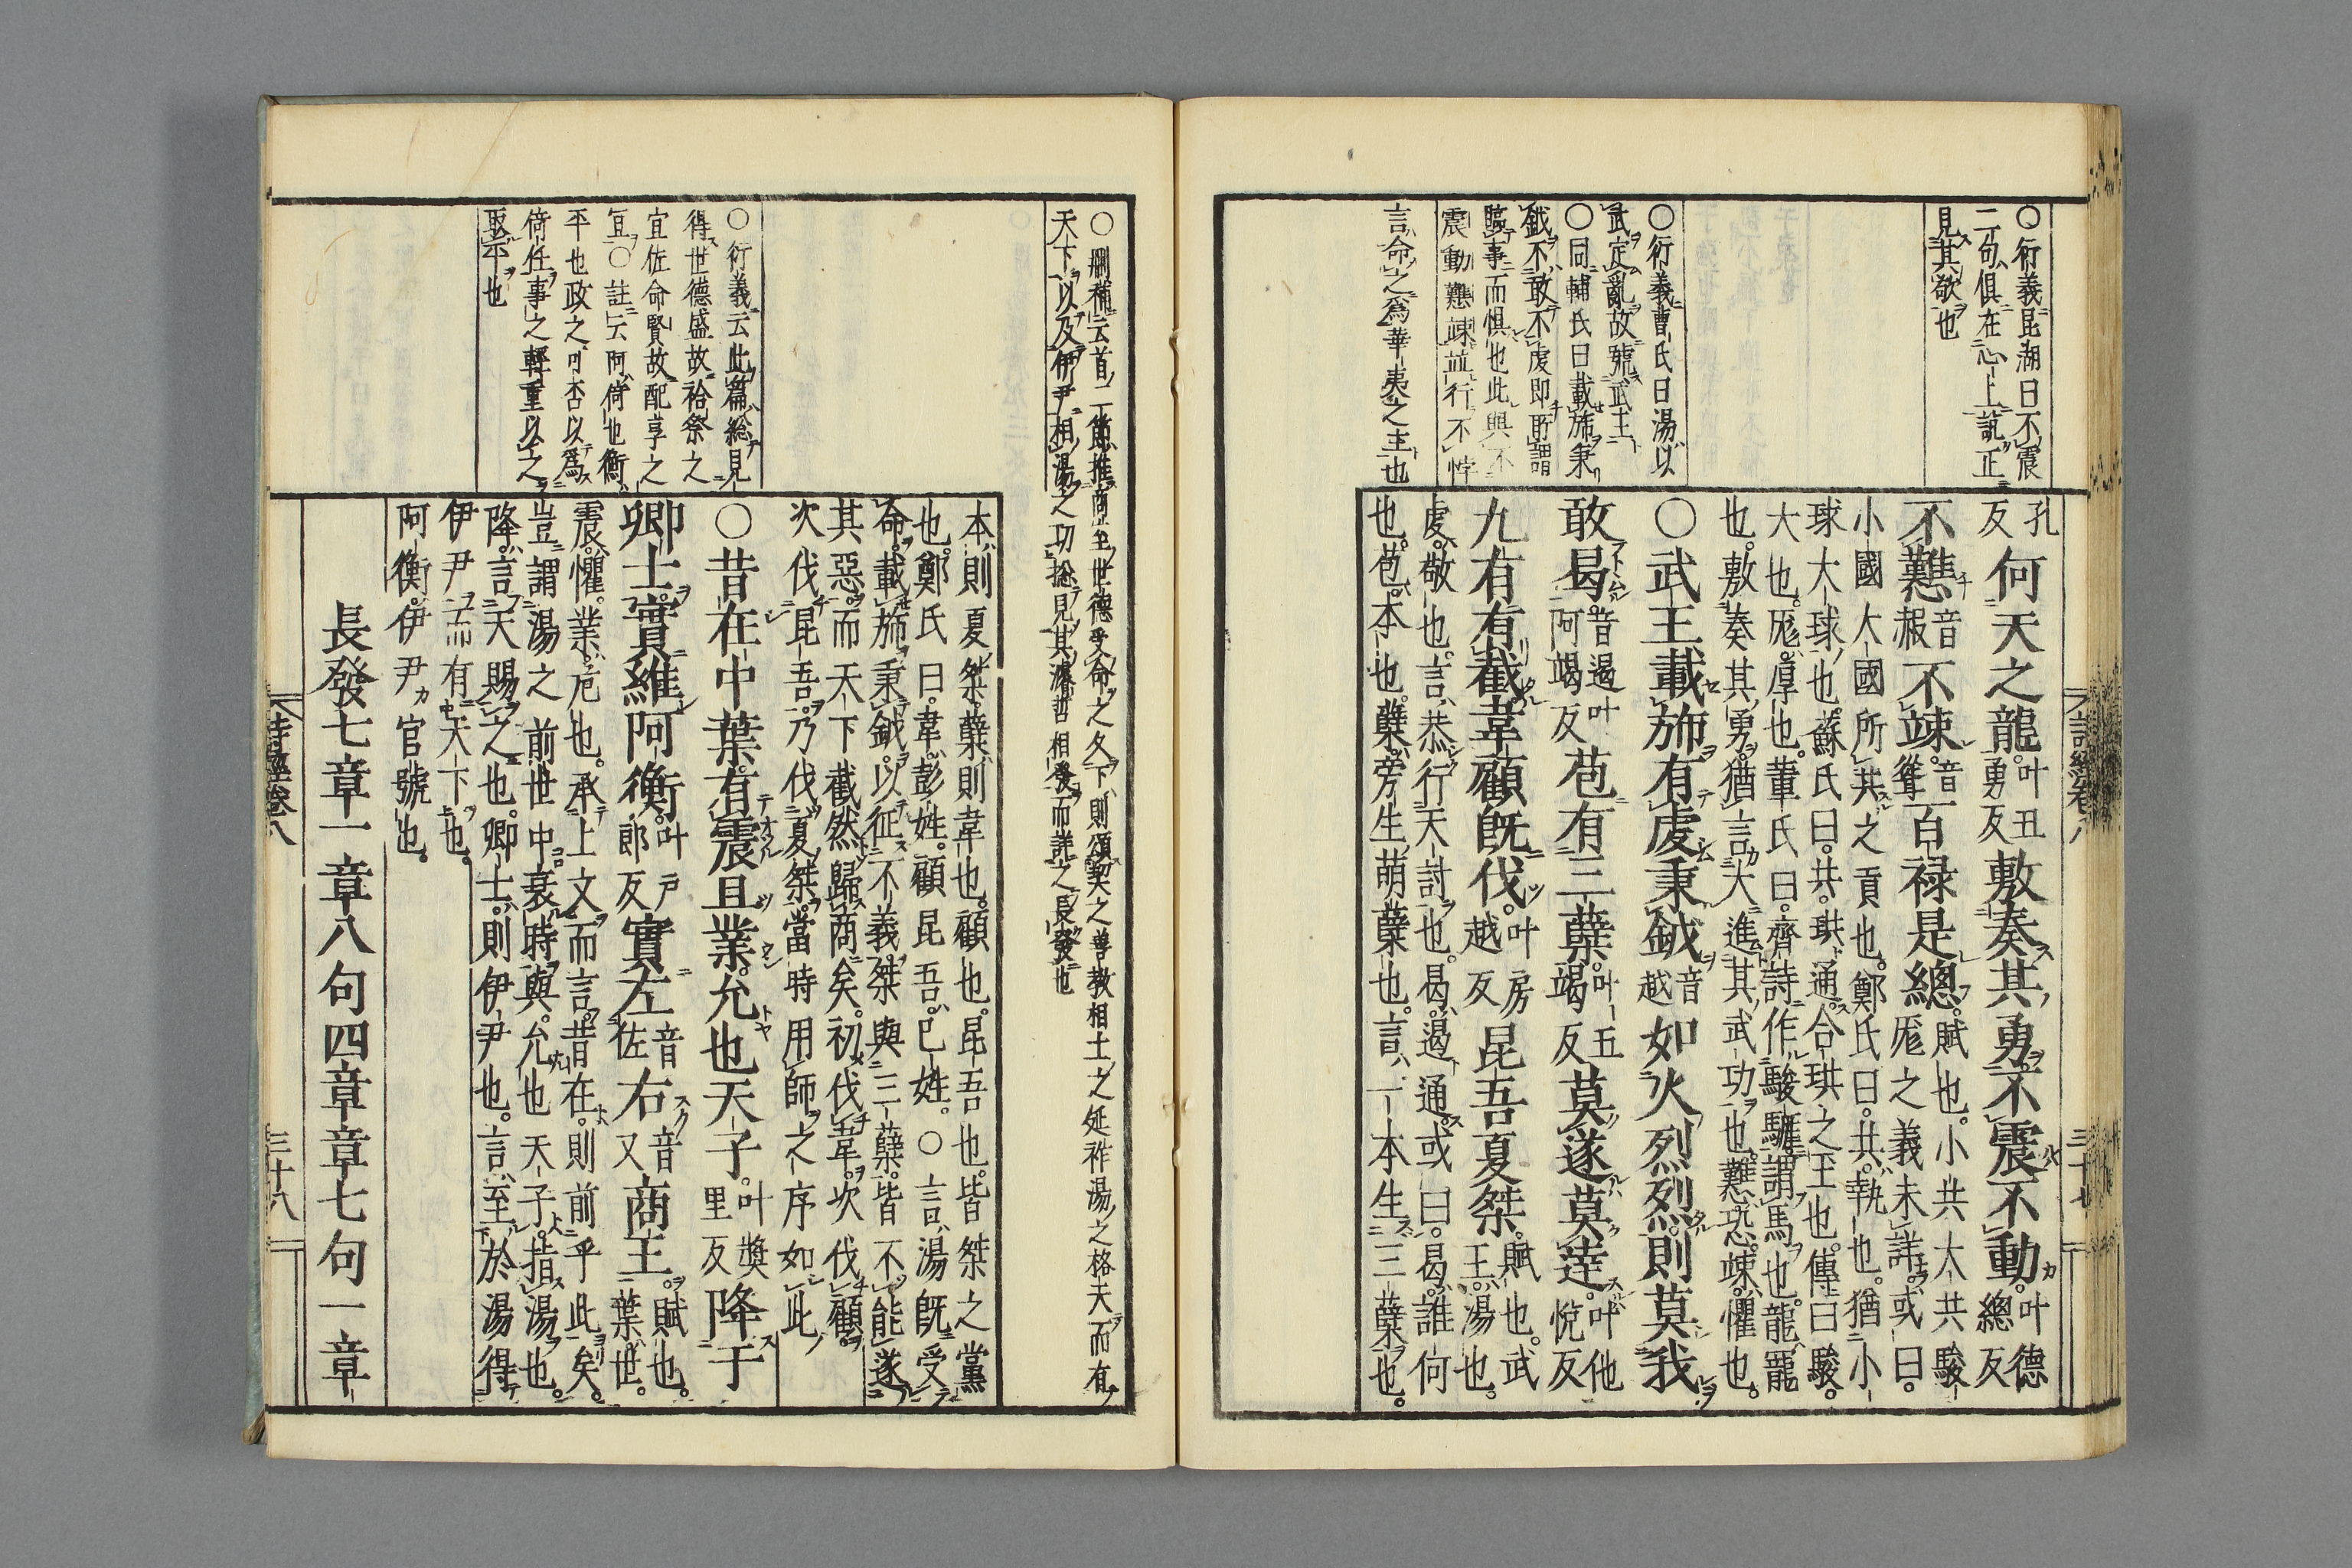 ○衍義昆湖曰不震
二句俱在心上説正
見其欲也
○衍義曹氏曰湯以
武定亂故號武王
○同輔氏曰載斾秉
鉞不敢不虔即所謂
臨事而惧也此與不
震動難竦並行不悖
言命之爲華夷之主也
孔反何天之龍叶丑勇反敷奏其勇不震不動叶德總反
不戁音赧不竦音聳百祿是總賦也小共大共駿
厖之義未詳或曰
小國大國所共之貢也鄭氏曰共執也猶小
球大球也蘇氏曰共珙通合珙之玉也傳曰駿
大也厖厚也董氏曰齊詩作駿駹謂馬也龍寵
也敷奏其勇猶言大進其武功也戁恐竦懼也
○武王載斾有虔秉鉞音越如火烈烈則莫我
敢曷音遏叶阿竭反苞有三蘖叶五竭反莫遂莫達叶他悅反
九有有截韋顧旣伐叶房越反昆吾夏桀賦也武
王湯也
虔敬也言恭行天討也曷遏通或曰曷誰何
也苞本也蘖旁生萌蘖也言一本生三蘖也
詩經卷八
三十七
○刪補云首二節推商至世德受命之久下則頌契之善教相土之延祚湯之格天而有
天下以及伊尹相湯之功揔見其濬哲相承而詳之長發也
○衍義云此篇總見
得世德盛故祫祭之
宜佐命賢故配享之
宜○註云阿倚也衡
平也政之可否以爲
倚任事之輕重以之
取平也
本則夏桀蘖則韋也顧也昆吾也皆桀之黨
也鄭氏曰韋彭姓顧昆吾己姓○言湯旣受
命載斾秉鉞以征不義桀與三蘖皆不能遂
其惡而天下截然歸商矣初伐韋次伐顧
次伐昆吾乃伐夏桀當時用師之序如此
○昔在中葉有震且業允也天子叶獎里反降于
卿士實維阿衡叶戶郎反實左音佐右音又商王賦也
葉世
震懼業危也承上文而言昔在則前乎此矣
豈謂湯之前世中衰時與允也天子指湯也
降言天賜之也卿士則伊尹也言至於湯得
伊尹而有天下也
阿衡伊尹官號也
長發七章一章八句四章章七句一章
詩經卷八
三十八